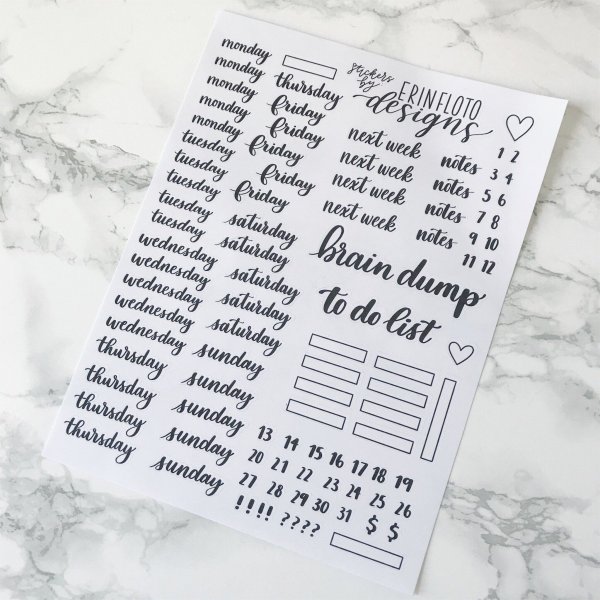 monday
monday
monday
monday
monday
tuesday
tuesday
tuesday
tuesday
tuesday
wednesday
wednesday
wednesday
wednesday
wednesday
thursday
thursday
thursday
thursday
thursday
friday
friday
friday
friday
friday
saturday
saturday
saturday
saturday
saturday
sunday
sunday
sunday
sunday
sunday
stickers
by
ERINFLOTO
designs
next week
next week
next week
next week
notes
notes
notes
notes
1 2
3 4
5 6
7 8
9 10
11 12
brain dump
to do list
13 14 15 16 17 18 19
20 21 22 23 24 25 26
27 28 29 30 31 $ $
!!!! ????